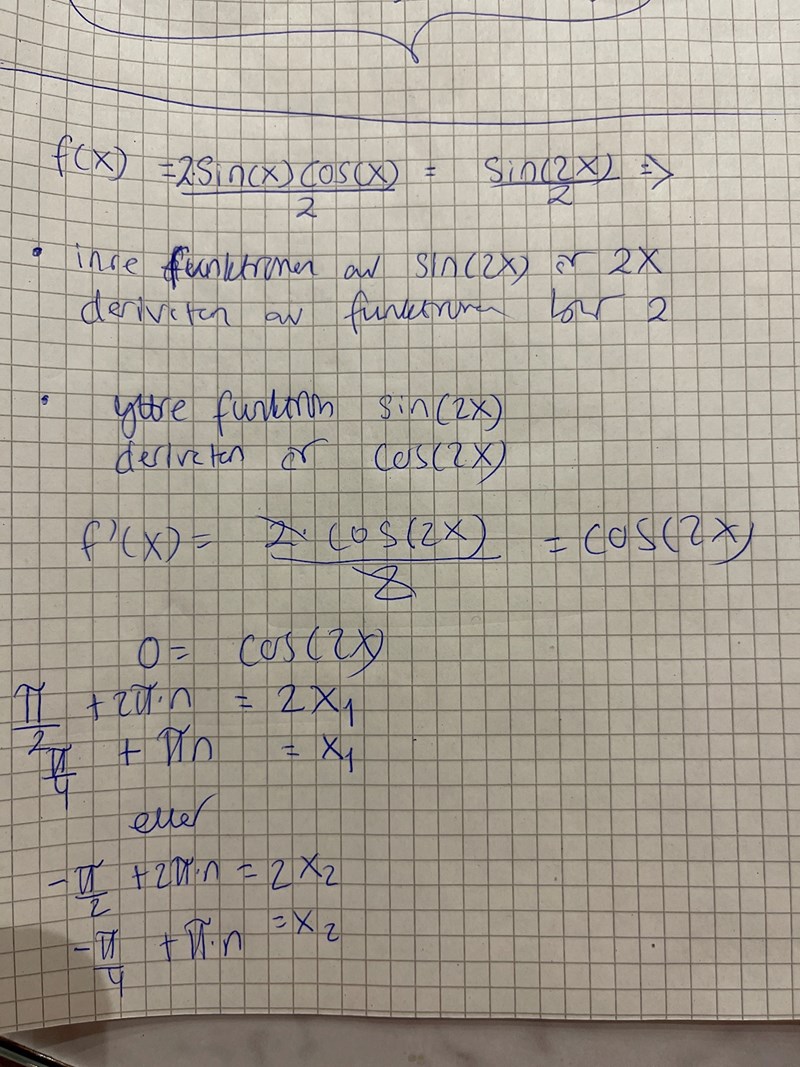 f(x) = 2·sin(x) cos(x) / 2 = sin(2x) / 2 =>
• inre funktionen av sin(2x) är 2x
derivatan av funktionen blir 2
• yttre funktion sin(2x)
derivatan är cos(2x)
f'(x) = 2· cos(2x) / 2 = cos(2x)
0 = cos(2x)
π/2 + 2π·n = 2x₁
π/4 + πn = x₁
eller
-π/2 + 2π·n = 2x₂
-π/4 + π·n = x₂